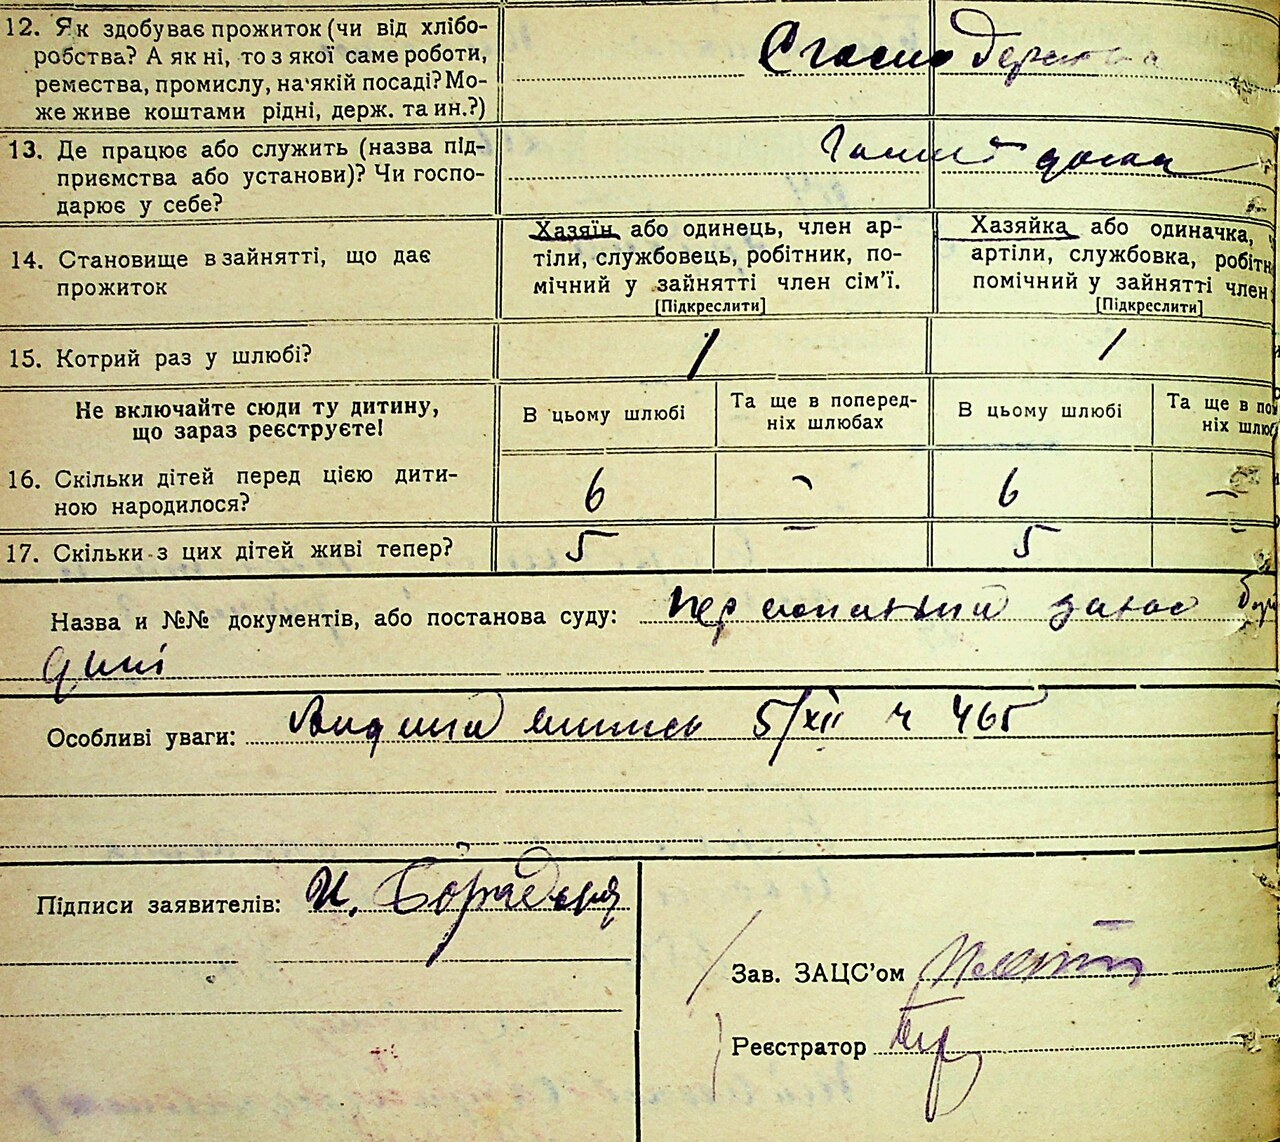 12. Як здобуває прожиток (чи від хлібо-
робства? А як ні, то з якої саме роботи,
ремества, промислу, на якій посаді? Мо-
же живе коштами рідні, держ. та ин.?)
13. Де працює або служить (назва під-
приємства або установи)? Чи госпо-
дарює у себе?
14. Становище в зайнятті, що дає
прожиток
Хазяїн або одинець, член ар-
тіли, службовець, робітник, по-
мічний у зайнятті член сім'ї.
[Підкреслити]
Хазяйка або одиначка,
артіли, службовка, робітн
помічний у зайнятті член
[Підкреслити]
15. Котрий раз у шлюбі?
1
1
Не включайте сюди ту дитину,
що зараз реєструєте!
В цьому шлюбі
Та ще в поперед-
ніх шлюбах
В цьому шлюбі
Та ще в по
ніх шлюб
16. Скільки дітей перед цією дити-
ною народилося?
6
-
6
-
17. Скільки з цих дітей живі тепер?
5
-
5
-
Назва и №№ документів, або постанова суду:
Особливі уваги: 5/XII ч 465
Підписи заявителів: И.
Зав. ЗАЦС'ом
Реєстратор